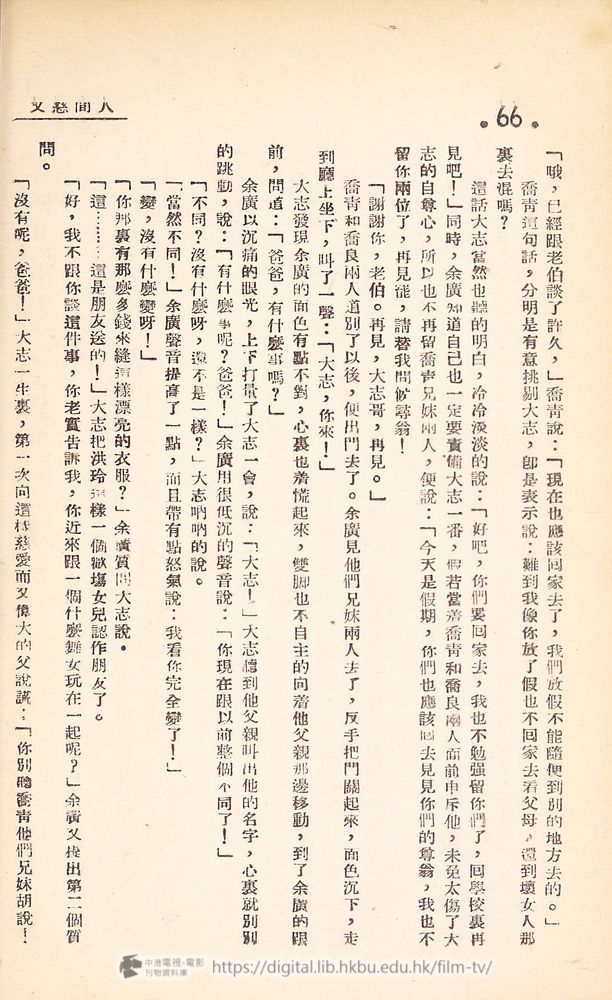 人間慈父
•66•
「哦，已經跟老伯談了許久，」喬青說：「現在也應該回家去了，我們放假不能隨便到別的地方去的。」
喬青這句話，分明是有意挑剔大志，卽是表示說：難到我像你放了假也不回家去看父母，還到壞女人那
裏去混嗎？
這話大志當然也聽的明白，冷冷淡淡的說：「好吧，你們要回家去，我也不勉强留你們了，回學校裏再
見吧！」同時，余廣知道自己也一定要責備大志一番，假若當着喬青和喬良兩人面前申斥他，未免太傷了大
志的自尊心，所以也不再留喬青兄妹兩人，便說：「今天是假期，你們也應該回去見見你們的尊翁，我也不
留你兩位了，再見罷，請替我問候尊翁！
「謝謝你，老伯。再見，大志哥，再見。」
喬青和喬良兩人道別了以後，便出門去了。余廣見他們兄妹兩人去了，反手把門關起來，面色沉下，走
到廳上坐下，叫了一聲：「大志，你來！」
大志發現余廣的面色有點不對，心裏也着慌起來，雙脚也不自主的向着他父親那邊移動，到了余廣的跟
前，問道：「爸爸，有什麽事嗎？」
余廣以沉痛的眼光，上下打量了大志一會，說：「大志！」大志聽到他父親叫出他的名字，心裏就別別
的跳動，說：「有什麽事呢？爸爸！」余廣用很低沉的聲音說：「你現在跟以前整個不同了！」
「不同？沒有什麽呀，還不是一樣？」大志吶吶的說。
「當然不同！」余廣聲音提高了一點，而且帶有點怒氣說：我看你完全變了！」
「變，沒有什麽變呀！」
「你那裏有那麽多錢來縫這樣漂亮的衣服？」余廣質問大志說。
「這……這是朋友送的！」大志把洪玲這樣一個歡塲女兒認作朋友了。
「好，我不跟你談這件事，你老實告訴我，你近來跟一個什麽舞女玩在一起呢？」余廣又提出第二個質
問。
「沒有呢，爸爸！」大志一生裏，第一次向這樣慈愛而又偉大的父說謊：「你別聽喬青他們兄妹胡說！
中港電視·電影
刊物資料庫
https://digital.lib.hkbu.edu.hk/film-tv/